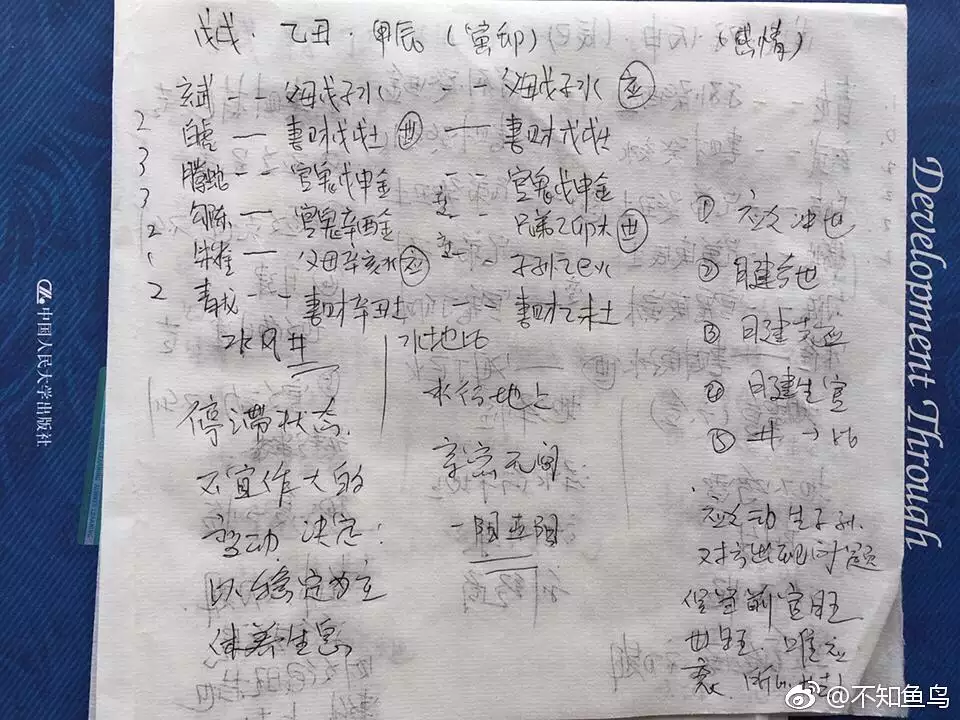 戊戌·乙丑·甲辰（寅卯）（感情）
玄武 -- 父母戊子水 -- 父母戊子水 应
2 白虎 — 妻财戊戌土 世 — 妻财戊戌土
3 腾蛇 -- 官鬼戊申金 -- 官鬼戊申金
3 勾陈 — 官鬼辛酉金 -- 兄弟乙卯木 世
2 朱雀 — 父母辛亥水 应 -- 子孙乙巳火
2 青龙 -- 妻财辛丑土 -- 妻财乙未土
水风井
水地比
停滞状态.
不宜作大的
变动 决定:
以稳定为主
休养生息
水行地上
亲密无间
一阳五阴
① 应爻冲世
② 日建合世
③ 日建克应
④ 日建生官
⑤ 井→比
应爻动生子孙.
对方出现问题
官旺
世旺. 唯应
衰.
Development Through
中国人民大学出版社
@不知鱼鸟